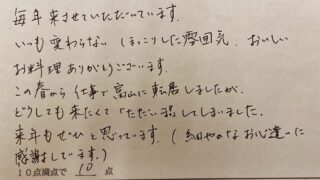 毎年来させていただいています。
いつも変わらない ほっこりした雰囲気、おいしい
お料理ありがとうございます。
この春から仕事で富山に転居しましたが、
どうしても来たくて「ただいま」してしまいました。
来年もぜひと思っています。(細やかなお心遣いに
感謝してます。)
10点満点で 10 点